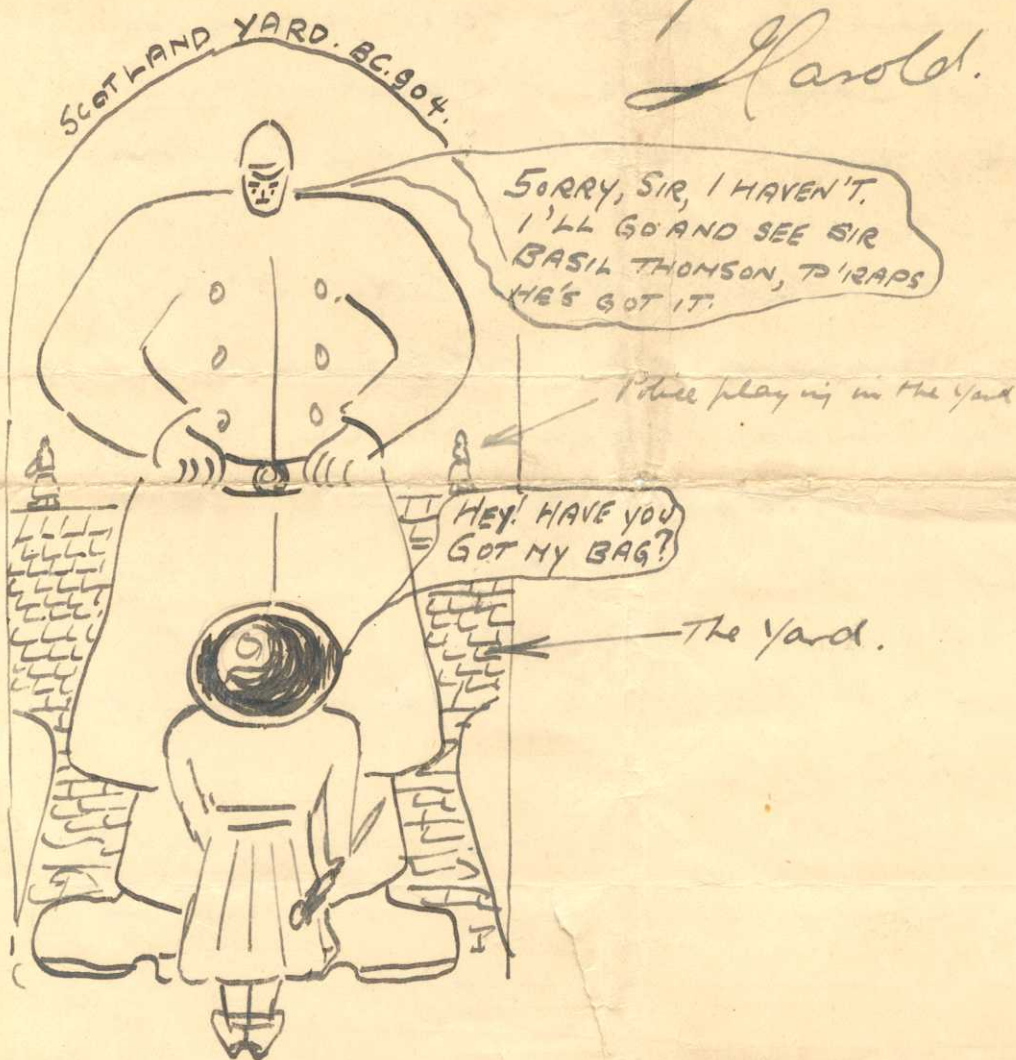 Harold.
SCOTLAND YARD. BC.904.
SORRY, SIR, I HAVEN'T.
I'LL GO AND SEE SIR
BASIL THOMSON, P'RAPS
HE'S GOT IT.
Police playing in the Yard
HEY! HAVE YOU
GOT MY BAG?
The Yard.